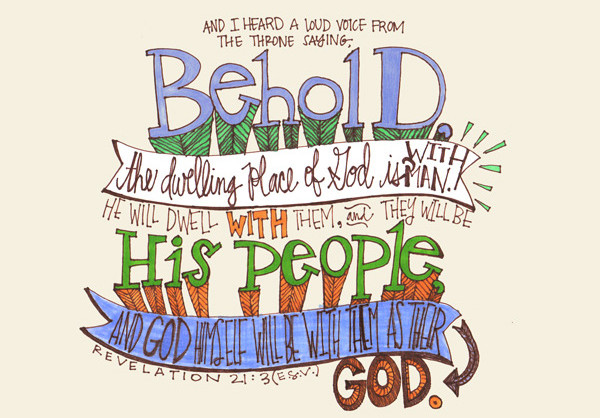 AND I HEARD A LOUD VOICE FROM
THE THRONE SAYING,
BeholD,
the dwelling place of God is WITH MAN!
HE WILL DWELL WITH THEM, and THEY WILL BE
His people,
AND GOD HIMSELF WILL BE WITH THEM AS THEIR
GOD.
REVELATION 21:3 (E.S.V.)